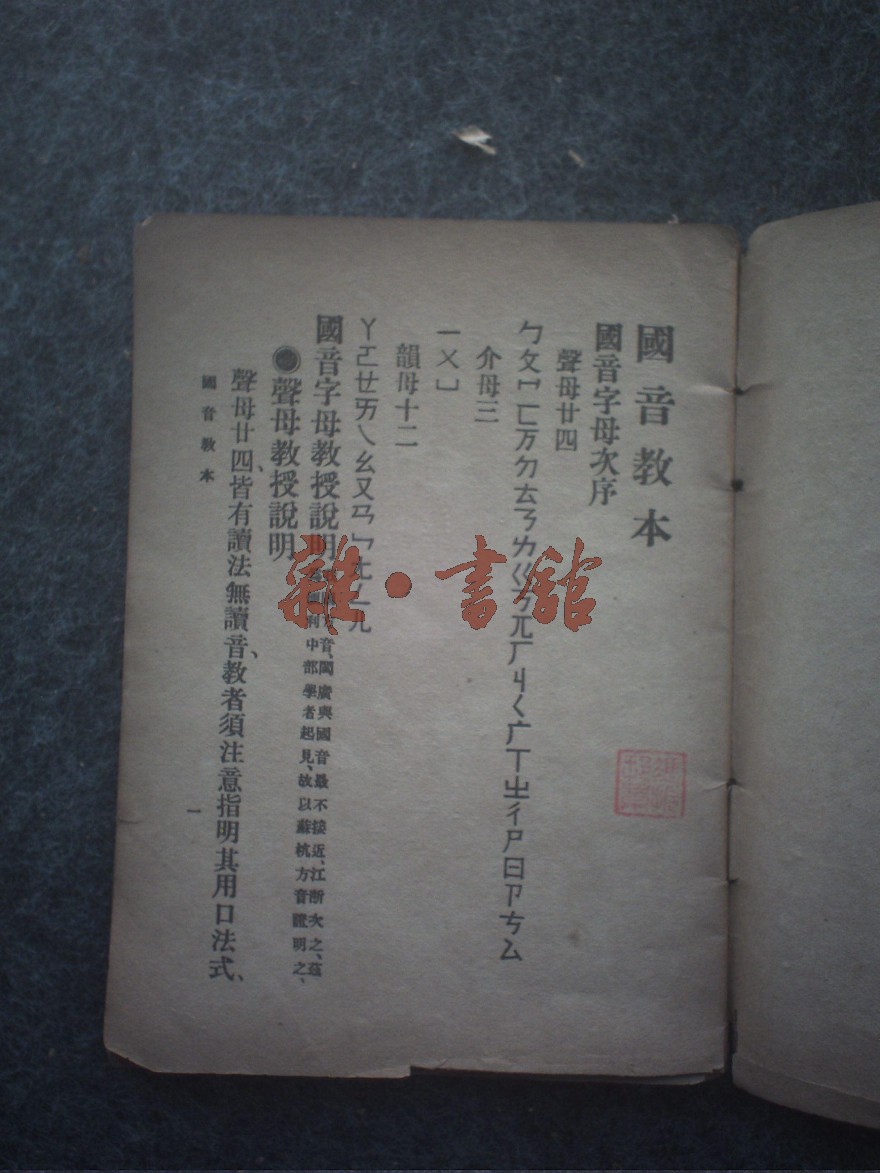 國音教本
國音字母次序
聲母廿四
ㄅㄆㄇㄈㄪㄉㄊㄋㄌㄍㄎㄫㄏㄐㄑㄬㄒㄓㄔㄕㄖㄗㄘㄙ
介母三
ㄧㄨㄩ
韻母十二
ㄚㄛㄝㄞㄟㄠㄡㄢㄣㄤㄥㄦ
國音字母教授說明
音、閩廣與國音最不接近、江浙次之、茲
利中部學者起見、故以蘇杭方音證明之、
聲母教授說明
聲母廿四、皆有讀法無讀音、教者須注意指明其用口法式、
國音教本
一
雜·書館